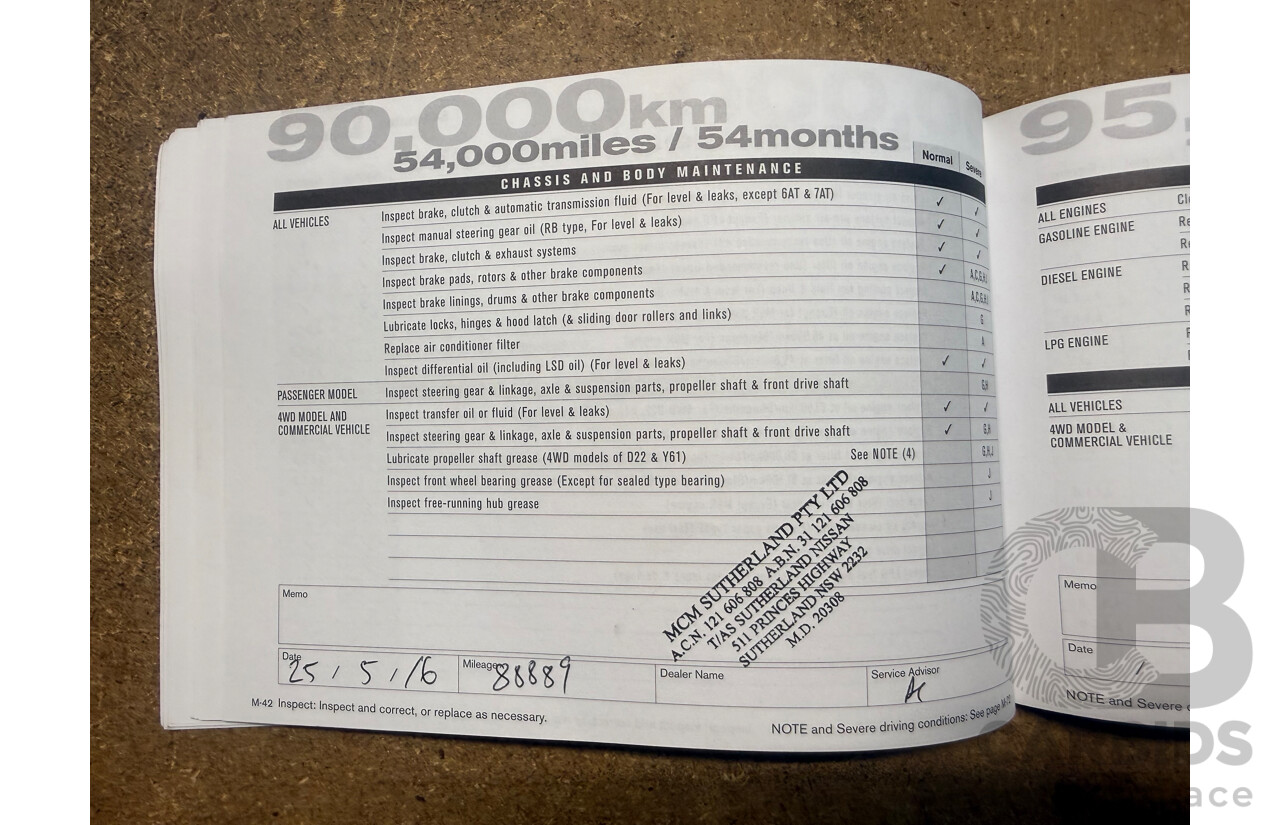 90,000km
54,000miles / 54months
Normal Severe
CHASSIS AND BODY MAINTENANCE
ALL VEHICLES Inspect brake, clutch & automatic transmission fluid (For level & leaks, except 6AT & 7AT) ✓ ✓
Inspect manual steering gear oil (RB type, For level & leaks) ✓ ✓
Inspect brake, clutch & exhaust systems ✓ ✓
Inspect brake pads, rotors & other brake components ✓ A,C,G,H,
Inspect brake linings, drums & other brake components A,C,G,H,
Lubricate locks, hinges & hood latch (& sliding door rollers and links) G
Replace air conditioner filter A
Inspect differential oil (including LSD oil) (For level & leaks) ✓ ✓
PASSENGER MODEL Inspect steering gear & linkage, axle & suspension parts, propeller shaft & front drive shaft G,H
4WD MODEL AND COMMERCIAL VEHICLE Inspect transfer oil or fluid (For level & leaks) ✓ ✓
Inspect steering gear & linkage, axle & suspension parts, propeller shaft & front drive shaft ✓ G,H
Lubricate propeller shaft grease (4WD models of D22 & Y61) See NOTE (4) G,H,J
Inspect front wheel bearing grease (Except for sealed type bearing) J
Inspect free-running hub grease J
MCM SUTHERLAND PTY LTD
A.C.N. 121 606 808 A.B.N. 31 121 606 808
T/AS SUTHERLAND NISSAN
511 PRINCES HIGHWAY
SUTHERLAND NSW 2232
M.D. 20308
Memo
Date 25 / 5 / 16 Mileage 88889 Dealer Name Service Advisor
M-42 Inspect: Inspect and correct, or replace as necessary.
NOTE and Severe driving conditions: See page M-
95,
ALL ENGINES
GASOLINE ENGINE
DIESEL ENGINE
LPG ENGINE
ALL VEHICLES
4WD MODEL &
COMMERCIAL VEHICLE
Memo
Date /
NOTE and Severe
CB